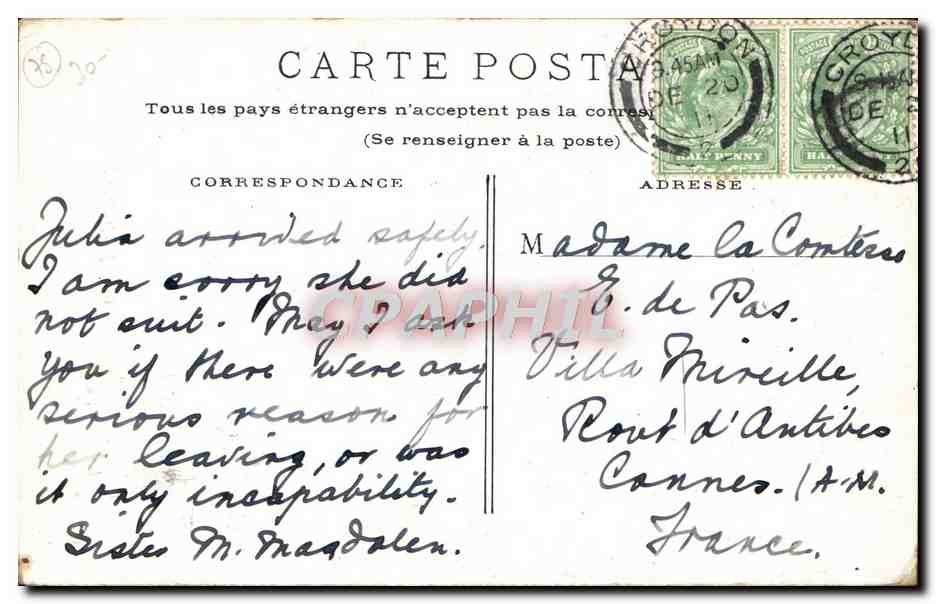 75 30-
CARTE POSTA
Tous les pays étrangers n'acceptent pas la corres
(Se renseigner à la poste)
CROYDON
8.45AM
DE 20
11
HALF PENNY
CROYD
DE
11
CORRESPONDANCE
Julia arrived safely.
I am sorry she did
not suit. May I ask
you if there were any
serious reason for
her leaving, or was
it only incapability.
Sister M. Magdalen.
ADRESSE
Madame la Comtesse
E. de Pas.
Villa Mireille,
Rout d'Antibes
Cannes. (A-M.
France.
CPAPHIL